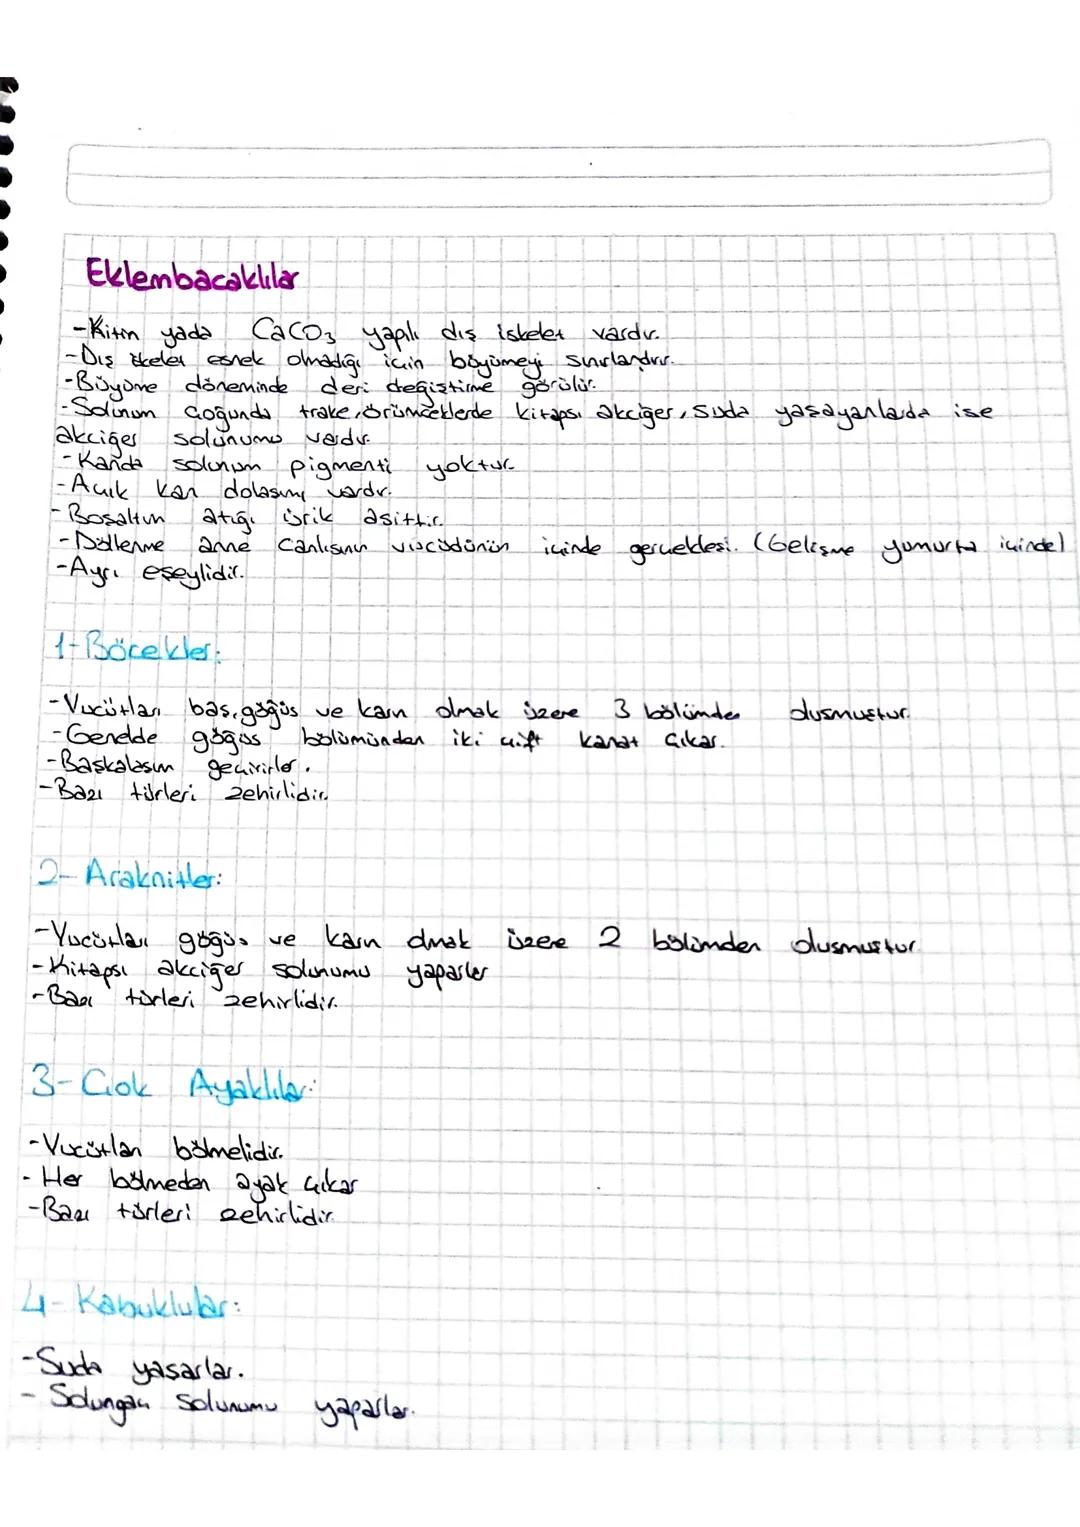 Eklembacaklılar
-Kitin yada CaCO3 yapılı dış iskelet vardır.
-Dış iskelet esnek olmadığı için büyümeyi sınırlandırır.
-Büyüme döneminde deri değiştirme görülür.
-Solunum çoğunda trake, örümceklerde kitapsı akciğer, suda yaşayanlarda ise
akciğer solunumu vardır.
-Kanda solunum pigmenti yoktur.
-Açık kan dolaşımı vardır.
-Boşaltım atığı ürik asittir.
-Döllenme anne canlısının vücüdünün içinde gerçekleşi. (Gelişme yumurta içinde)
-Ayrı eşeylidir.
1-Böcekler:
-Vucütları baş, göğüs ve karın olmak üzere 3 bölümden oluşmuştur.
-Genelde göğüs bölümünden iki çift kanat çıkar.
-Başkalaşım geçirirler.
-Bazı türleri zehirlidir.
2- Araknitler:
-Vucütları göğüs ve karın olmak üzere 2 bölümden oluşmuştur.
-Kitapsı akciğer solunumu yaparlar
-Bazı türleri zehirlidir.
3-Çok Ayaklılar:
-Vucütları bölmelidir.
- Her bölmeden ayak çıkar
-Bazı türleri zehirlidir.
4-Kabuklular:
-Suda yaşarlar.
- Solungaç solunumu yaparlar.